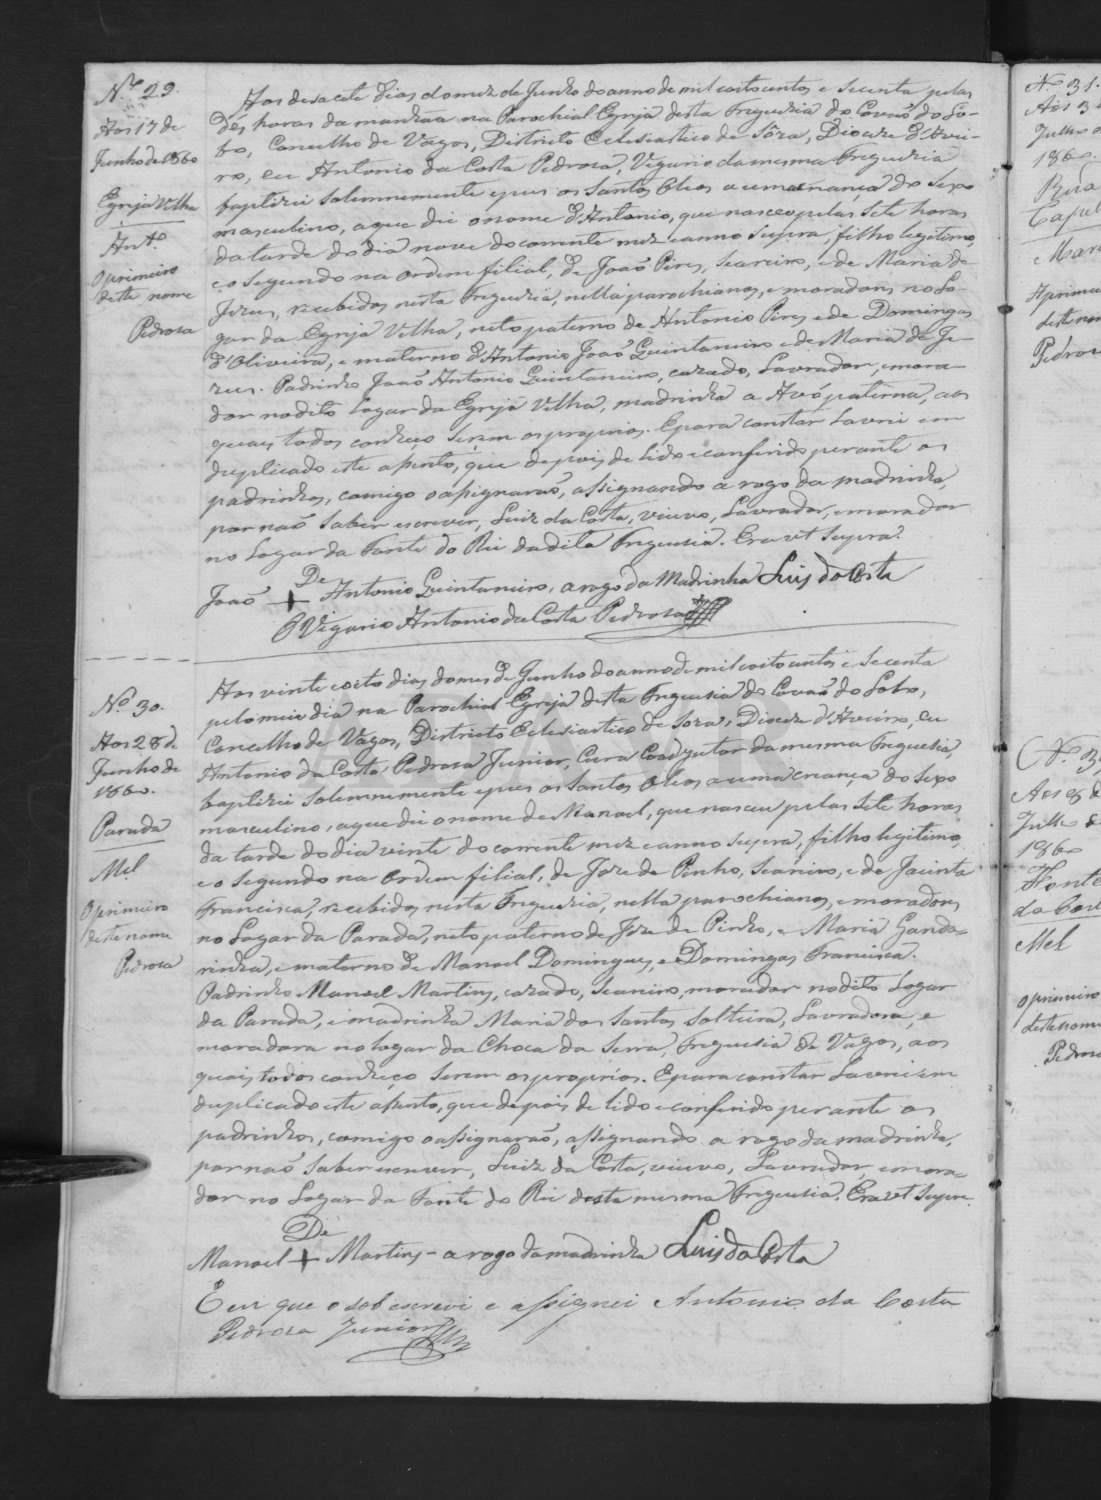 Nº 29.
Aos 17 de
Junho de 1860
Egreja Velha
Antº
O primeiro
deste nome
Pedrosa
Aos desacete dias do mez de Junho do anno de mil oitocentos e secenta pelas
dés horas da manhaa na Parochial Egreja desta Freguezia do Covaõ do Lo-
bo, Concelho de Vagos, Districto Eclesiastico de Sôza, Diocese d'Avei-
ro, eu Antonio da Costa Pedrosa, Vigario da mesma Freguezia
baptizei solemnemente e pus os Santos Oleos a uma criança do sexo
masculino, a que dei o nome d'Antonio, que nasceo pelas sete horas
da tarde do dia nove do corrente mez e anno supra, filho legitimo,
e o segundo na ordem filial, de João Pires, Seareiro, e de Maria de
Jezus, recebidos nesta Freguezia, nella parochianos, e moradores no Lo-
gar da Egreja Velha, neto paterno de Antonio Pires e de Domingas
d'Oliveira, e materno d'Antonio Joaõ Quintaneiro e de Maria de Je-
zus. Padrinho Joaõ Antonio Quintaneiro, cazado, Lavrador, e mora-
dor no dito Logar da Egreja Velha, madrinha a Avó paterna, aos
quais todos conheço serem os proprios. E para constar Lavrei em
duplicado este assento, que depois de lido e conferido perante os
padrinhos, comigo o assignaraõ, assignando a rogo da madrinha,
por naõ saber escrever, Luiz da Costa, viuvo, Lavrador, e morador
no Logar da Fonte do Rei da dita Freguesia. Era ut supra.
De
Joaõ + Antonio Quintaneiro, a rogo da Madrinha Luis da Costa
O Vigario Antonio da Costa Pedrosa
Nº 30.
Aos 28 de
Junho de
1860.
Parada
Mel
O primeiro
deste nome
Pedrosa
Aos vinte e oito dias do mes de Junho do anno de mil oito centos e secenta
pelo meio dia na Parochial Egreja desta Freguesia do Covaõ do Lobo,
Concelho de Vagos, Districto Eclesiastico de Soza, Diocese d'Aveiro, eu
Antonio da Costa Pedrosa Junior, Cura Coadjutor da mesma Freguesia,
baptizei solemnemente e pus os Santos Oleos a uma criança do sexo
masculino, a que dei o nome de Manoel, que nasceu pelas sete horas
da tarde do dia vinte do corrente mez e anno supra, filho legitimo,
e o segundo na ordem filial, de Jose de Pinho, Seareiro, e de Jacinta
Francisca, recebidos nesta Freguezia, nella parochianos, e moradores
no Logar da Parada, neto paterno de Jose de Pinho, e Maria Ganda-
rinha, e materno de Manoel Domingues, e Domingas Francisca.
Padrinho Manoel Martins, cazado, Seareiro, morador no dito Logar
da Parada, e madrinha Maria dos Santos, solteira, Lavradora, e
moradora no logar da Choca da Serra, Freguesia de Vagos, aos
quais todos conheço serem os proprios. E para constar Lavrei em
duplicado este assento, que depois de lido e conferido perante os
padrinhos, comigo o assignaraõ, assignando a rogo da madrinha,
por naõ saber escrever, Luiz da Costa, viuvo, Lavrador, e mora-
dor no Logar da Fonte do Rei desta mesma Freguesia. Era ut supra.
De
Manoel + Martins - a rogo da madrinha Luis da Costa
E eu que o sobescrevi e assignei Antonio da Costa
Pedrosa Junior
Nº 31.
Aos 3
Julho
1860
Capel
Mari
Aprimei
deste nom
Pedros
Nº 3
Aos 8 d
Julho d
1860
Fonte
do
Mel
O primeiro
deste nome
Pedros